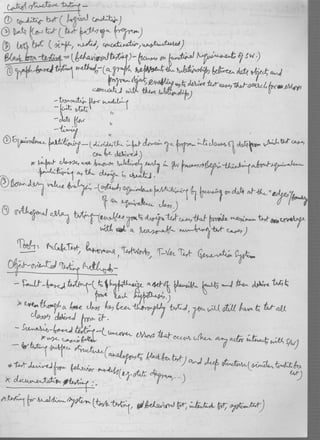 Control structure testing -
① condition test (logical condition)
② Data flow test (test path of a program)
③ loop test (simple, nested, concatenation, unstructured)
Black box-testing = (behavioral testing) - focuses on functional requirements of S/W.
① graph-based testing methods - (a graph represent the relationships between data object and
program object, enabling us to derive test cases that search for errors
associated with these relationship)
- transaction flow modeling
- finite state
- data flow
- timing
② Equivalence partitioning - (divides the input domain of a program into classes of data from which test cases
can be derived)
* input classes are known relatively early in the process begin thinking about equivalence
partitioning as the design is created.
③ Boundary value analysis - (extends equivalence partitioning by focusing on data at the "edges/boundary"
of an equivalence class)
④ orthogonal array testing - (enables you to design test cases that provide maximum test coverage
with a reasonable number of test cases)
Tools: McCabe Test, Panorama, TestWorks, T-Vec Test Generation System
Object-oriented Testing Methods -
- Fault-based testing - (to hypothesize a set of plausible faults and then derive tests to
prove each hypothesis)
* even though a base class has been thoroughly tested, you will still have to test all
classes derived from it.
- Scenario-based testing - (uncover errors that occur when any actor interacts with S/W)
* use cases
- testing surface structure (analogous to black box test) and deep structure (similar to white box
test)
* test derived from behavior models (e.g. state diagram, ...)
* documentation testing -
* testing for realtime system (task testing, behavioral test, intertask test, system test)